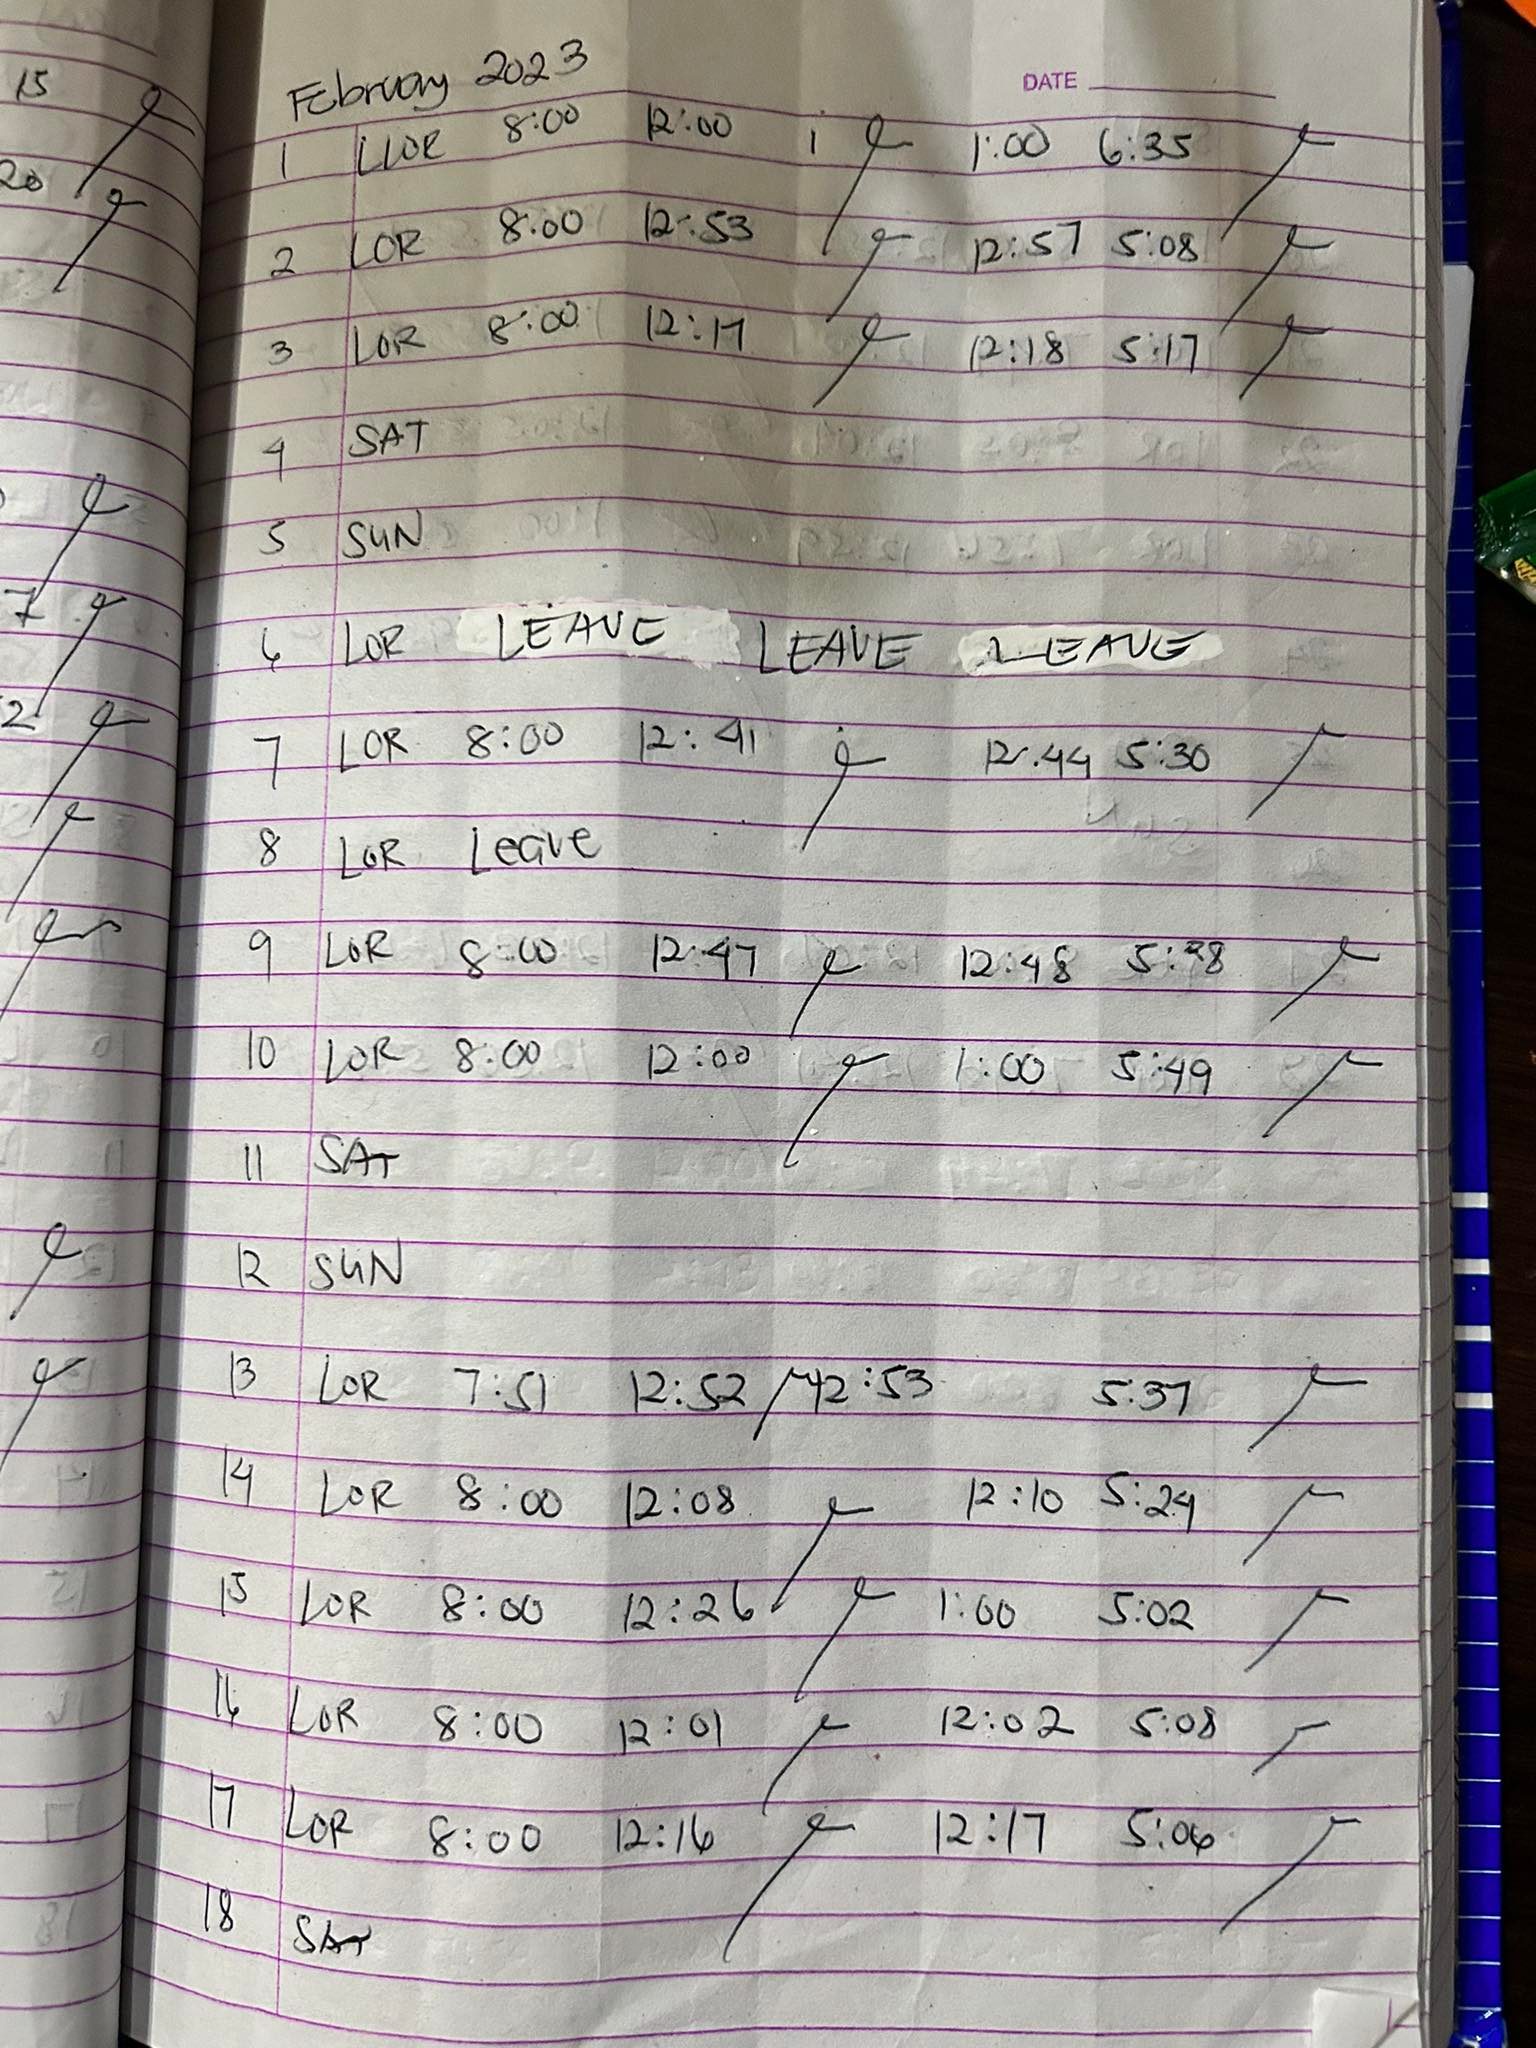 February 2023
DATE
1 LLOR 8:00 12:00 1:00 6:35
2 LOR 8:00 12:53 12:57 5:08
3 LOR 8:00 12:17 12:18 5:17
4 SAT
5 SUN
6 LOR LEAVE LEAVE LEAVE
7 LOR 8:00 12:41 12:44 5:30
8 LOR Leave
9 LOR 8:00 12:47 12:48
10 LOR 8:00 12:00 1:00 5:49
11 SAT
12 SUN
13 LOR 7:51 12:52 12:53 5:37
14 LOR 8:00 12:08 12:10 5:24
15 LOR 8:00 12:26 1:00 5:02
16 LOR 8:00 12:01 12:02 5:08
17 LOR 8:00 12:16 12:17 5:06
18 SAT
15
20